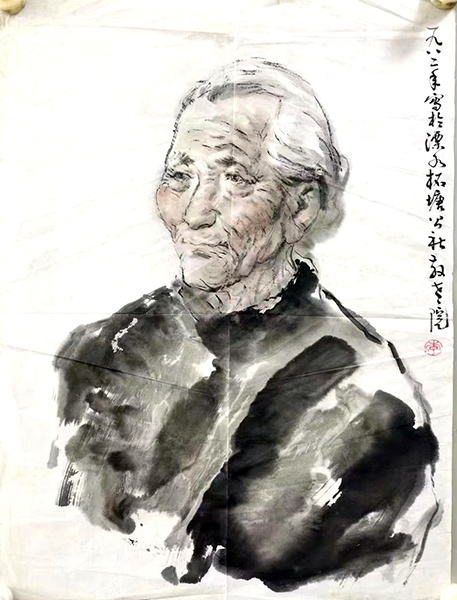 一九八二年写於溧水柘塘公社敬老院